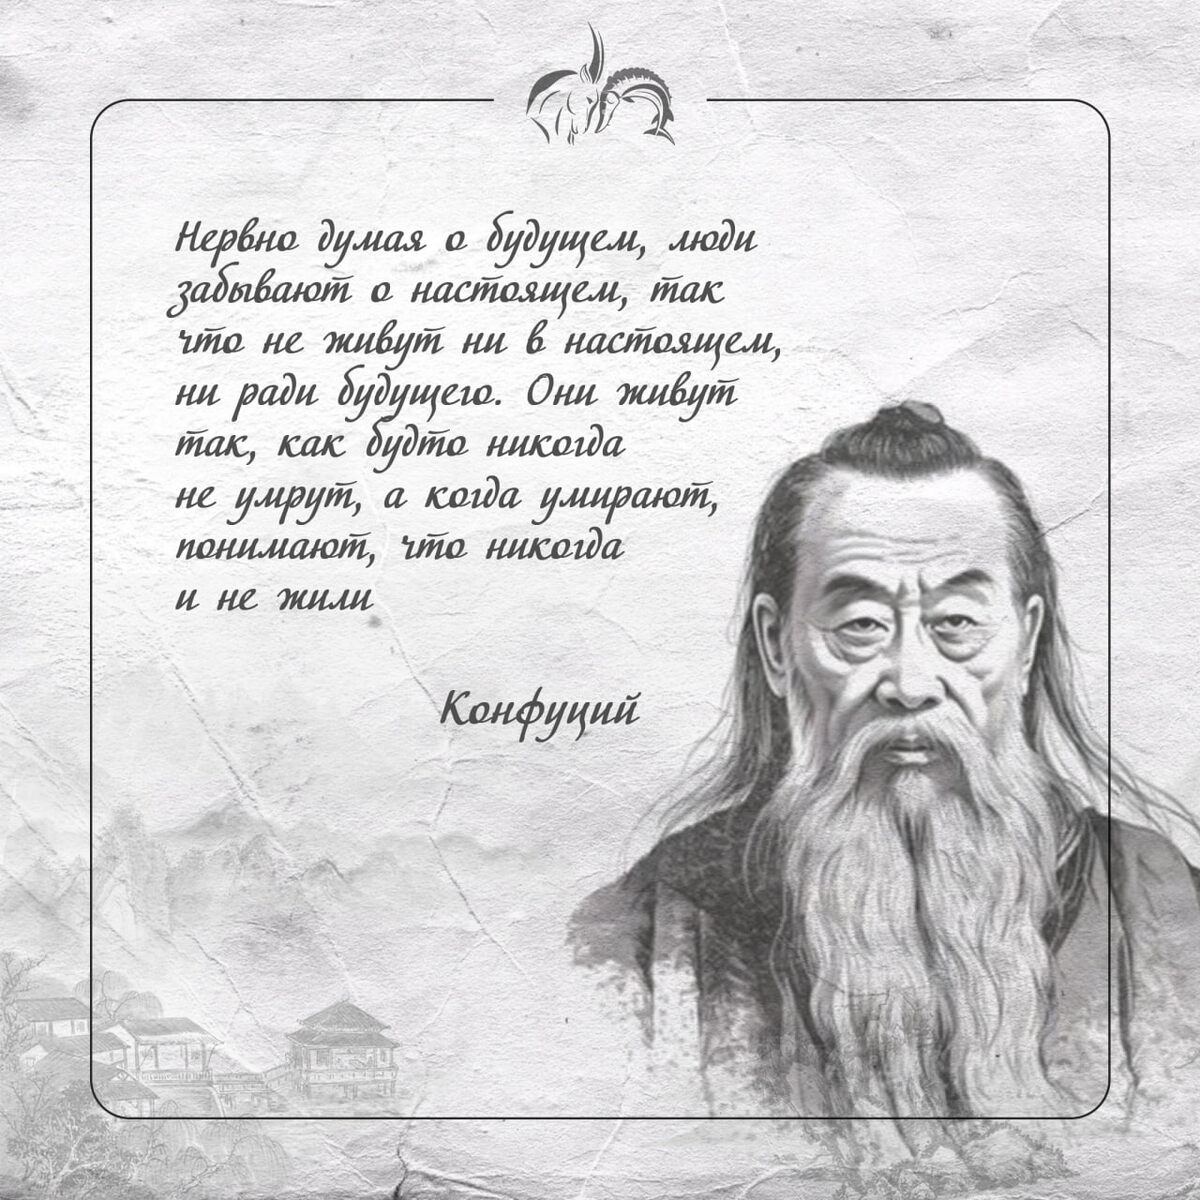 Нервно думая о будущем, люди
забывают о настоящем, так
что не живут ни в настоящем,
ни ради будущего. Они живут
так, как будто никогда
не умрут, а когда умирают,
понимают, что никогда
и не жили
Конфуций